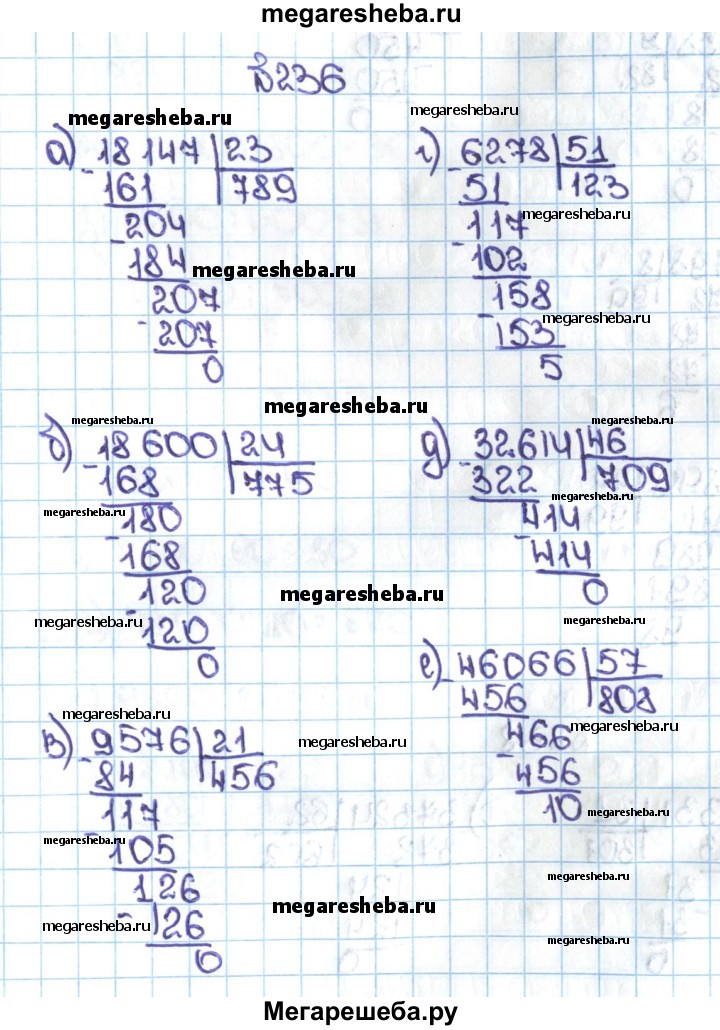 megaresheba.ru
№236
megaresheba.ru
а) 18147 | 23
- 161 | 789
204
- 184
megaresheba.ru
207
- 207
0
megaresheba.ru
г) 6278 | 51
- 51 | 123
megaresheba.ru
117
- 102
158
- 153
megaresheba.ru
5
megaresheba.ru
megaresheba.ru
б) 18600 | 24
- 168 | 775
megaresheba.ru
180
- 168
120
megaresheba.ru
- 120
0
megaresheba.ru
megaresheba.ru
д) 32614 | 46
- 322 | 709
megaresheba.ru
414
- 414
0
megaresheba.ru
megaresheba.ru
в) 9576 | 21
- 84 | 456
117
megaresheba.ru
- 105
126
megaresheba.ru
- 126
0
megaresheba.ru
е) 46066 | 57
- 456 | 808
466
megaresheba.ru
- 456
10
megaresheba.ru
megaresheba.ru
megaresheba.ru
megaresheba.ru
Мегарешеба.ру